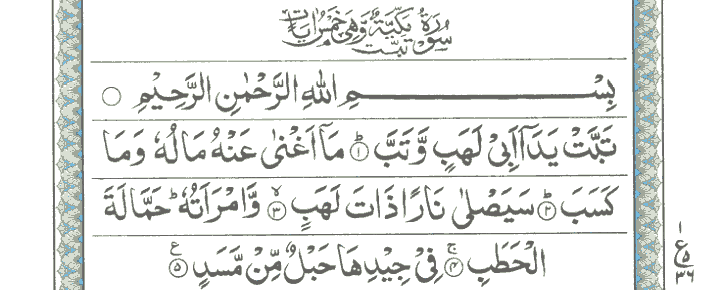 سُوْرَةُ تَبَّتْ مَكِّيَّةٌ وَّهِيَ خَمْسُ اٰيَاتٍ
بِسْمِ اللهِ الرَّحْمٰنِ الرَّحِيْمِ ○
تَبَّتْ يَدَاۤ اَبِىْ لَهَبٍ وَّتَبَّ ؕ﴿۱﴾ مَاۤ اَغْنٰى عَنْهُ مَالُهٗ وَمَا
كَسَبَ ؕ﴿۲﴾ سَيَصْلٰى نَارًا ذَاتَ لَهَبٍ ۙ﴿۳﴾ وَّامْرَاَتُهٗ ؕ حَمَّالَةَ
الْحَطَبِ ۚ﴿۴﴾ فِىْ جِيْدِهَا حَبْلٌ مِّنْ مَّسَدٍ ﴿۵﴾ ع
۱
ع
۵
۳۶